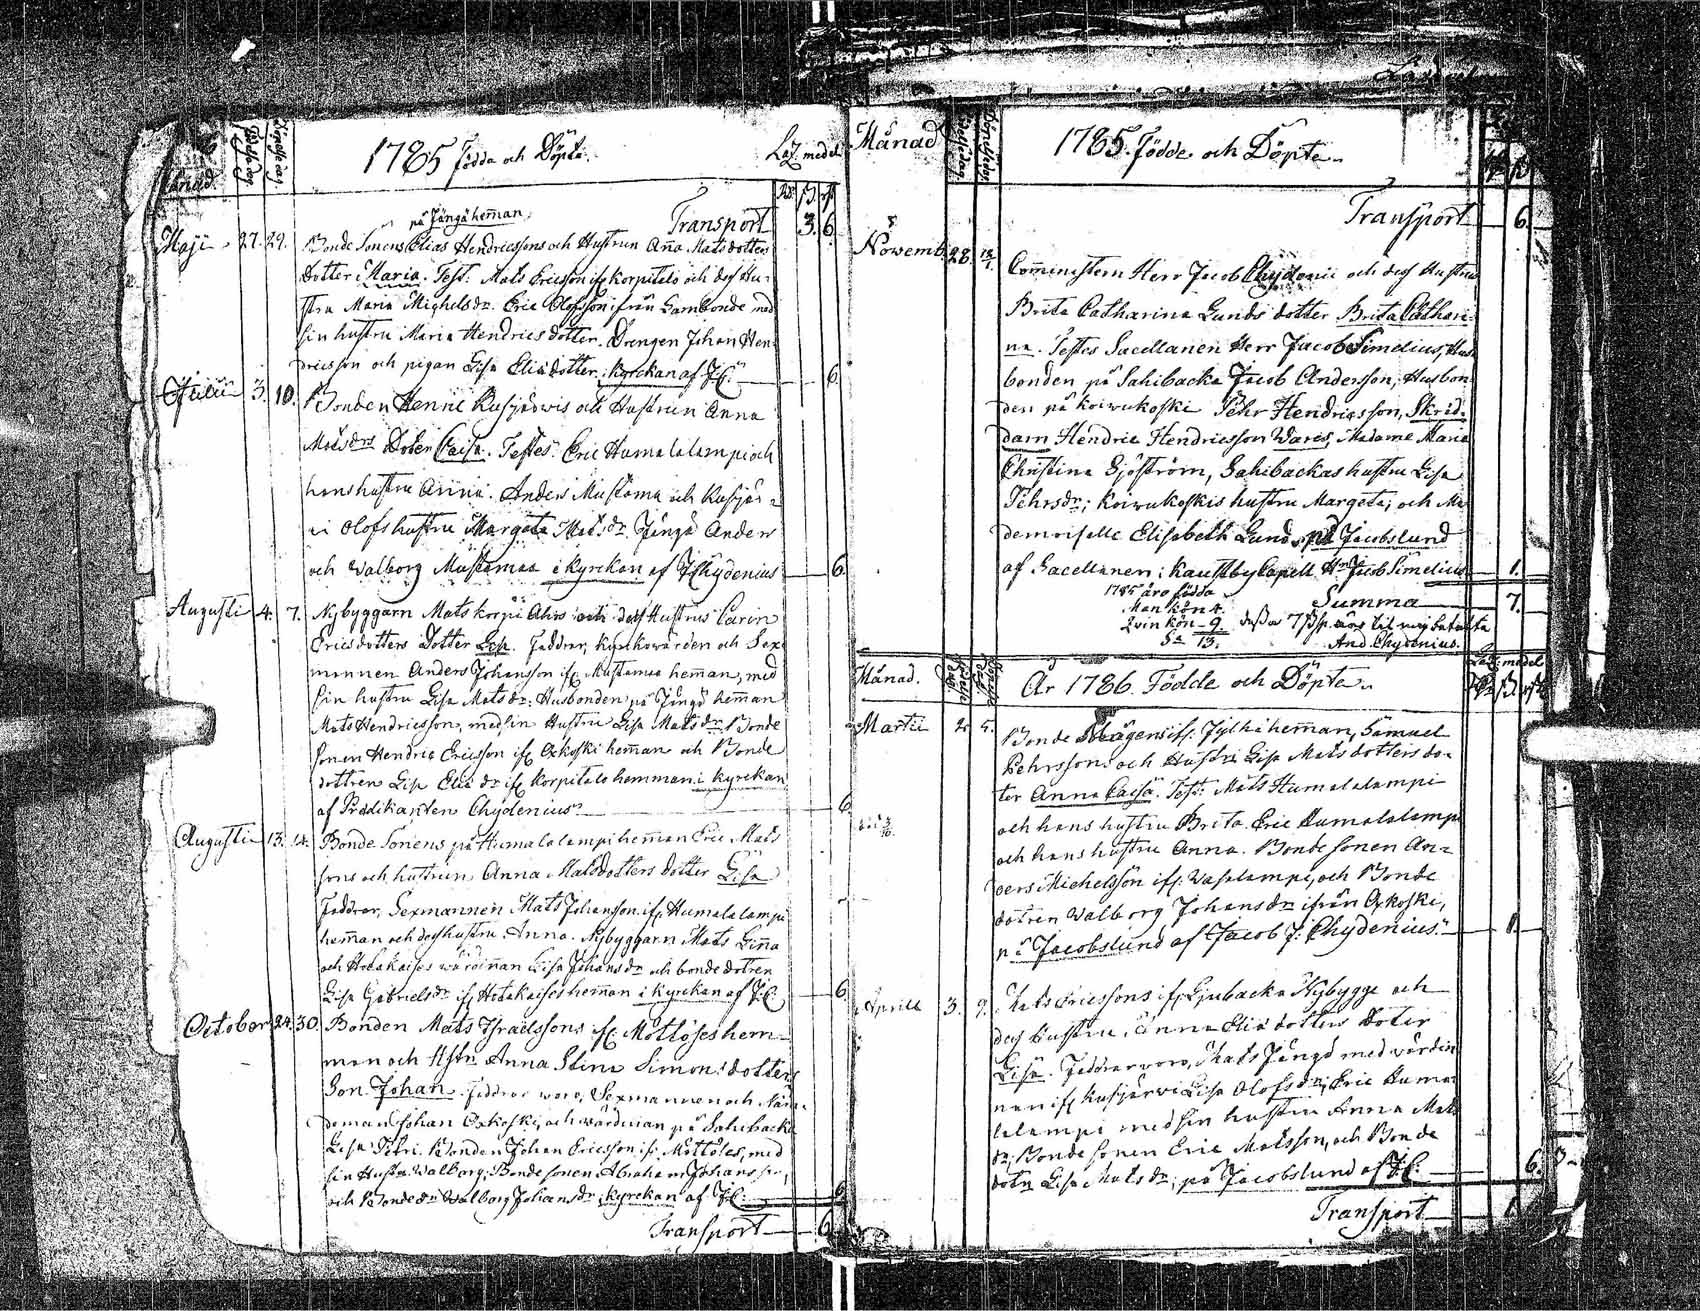 Månad. Födelse dag. Döpelse dag. 1785 Födda och Döpta. Laz. medel
Rd. ß. rst
på Jängä heman,
Transport 3. 6.
Maji 27. 29. Bonde Sonens Elias Hendricssons och Hustrun Aña Matsdotters
dotter Maria. Test: Mats Ericsson if. Korpitalo och dess Hu-
stru Maria Michelsdr. Eric Olofsson ifrån Gambonde med
sin hustru Maria Hendricsdotter. Drengen Johan Hen-
dricsson och pigan Lisa Eliædotter, i kyrckan af J.C. 6.
3. 10. Bonden Henric Kusjärwis och Hustrun Anna
Matsdrs Doter Caisa. Testes: Eric Humalalampi och
hans hustru Anna. Anders Mustama och Kusjär-
vi Olofs hustru Margeta Matsdr Jängä Anders
och Walborg Mustamaa i kyrckan af J Chydenius 6.
Augusti 4. 7. Nybyggarn Mats Korpi Ahos och dess Hustrus Carin
Ericsdotters Dotter Lisa. Faddrar, kyrckowärden och Sex
mannen Anders Johansson if. Mustamaa heman, med
sin hustru Lisa Matsdr: Husbonden på Jängä heman
Mats Hendricsson, med sin Hustru Lisa Matsdr. Bonde
sonen Hendric Ericsson if. Oxkoski heman och Bonde
dottren Lisa Eliædr if. Korpitalo hemman i kyrckan
af Prädikanten Chydenius 6
Augusti 13. 14. Bonde Sonens på Humalalampi heman Eric Mats
sons och hustrun Anna Matsdotters dotter Lisa
Faddrar, Sexmannen Mats Johansson if. Humalalampi
heman och dess hustru Anna. Nybyggarn Mats
och Hotakaises wärdinnan Lisa Johansdr och bonde dotren
Lisa Gabrielsdr if. Hotakaises heman i kyrckan af J.C. 6
October 24. 30. Bonden Mats Israelssons if. Möttöses hem-
man och Hstru Anna Stina Simonsdotters
Son Johan. Faddrar woro, Sexmannen och Näm-
deman Johan Oxkoski, och wärdinan på Sahibacka
Lisa Petri. Bonden Johan Ericsson if. Möttöses, med
sin Hustru Walborg, Bondesonen Abraham Johansson,
och Bondedr Walborg Johansdr i kyrckan af J.C. 6
Transport 6
Månad Födelsedag Döpelsedag 1785. Födde och Döpte.
Transport 6.
Novemb. 28. Comministern Herr Jacob Chydenii och dess Hustrus
Brita Catharina Lunds dotter Brita Cathari-
na. Testes Sacellanen Herr Jacob Simelius, Hus
bonden på Sahibacka Jacob Andersson, Husbon
den på Koiwukoski Pehr Hendricsson, Skräd-
darn Hendric Hendricsson Waris, Madame Maria
Christina Sjöström, Sahibackas hustru Lisa
Pehrsdr; Koiwukoskis hustru Margeta; och Ma
demoiselle Elisabeth Lund, på Jacobslund
af Sacellanen i Kaustby Capell Hr Jacob Simelius 1.
1785 äro födda
Man kön 4. Summa 7.
Qvin kön 9 dessa 7 ß äro til mig betalta
Sa 13. And. Chydenius.
Månad. År 1786. Födde och Döpte. Laz: medel
Rd ß rst
Martii 2. 5. Bonde Mågens if. Jylhä heman, Samuel
Pehrssons och Hustru Lisa Matsdotters do-
ter Anna Caisa. Test: Mats Humalalampi
och hans hustru Brita. Eric Humalalampi
och hans hustru Anna. Bonde sonen An-
ders Michelsson if. Wasalampi, och Bonde
dotren Walborg Johansdr ifrån Oxkoski,
på Jacobslund af Jacob J. Chydenius. 1.
Aprill 3. 9. Mats Ericssons if. Ljubacka Nybygge och
dess Hustru Anna Eliædotters Doter
Lisa. Faddrar woro, Mats Jängä med wärdin
nan if. Kusjärwi Lisa Olofsdr, Eric Huma-
lalampi med sin hustru Anna Mats
dr, Bonde sonen Eric Matsson, och Bonde
dotrn Lisa Matsdr, på Jacobslund af J.C. 6.
Transport